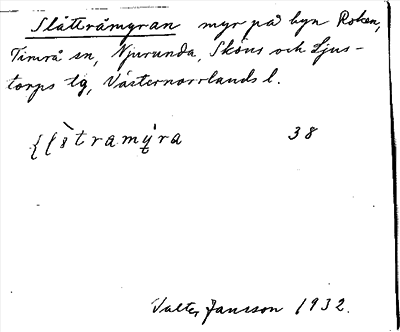 Slåtträmyran myr på byn Roken,
Timrå sn, Njurunda, Sköns och Ljus-
torps tg, Västernorrlands l.
38
Valter Jansson 1932.